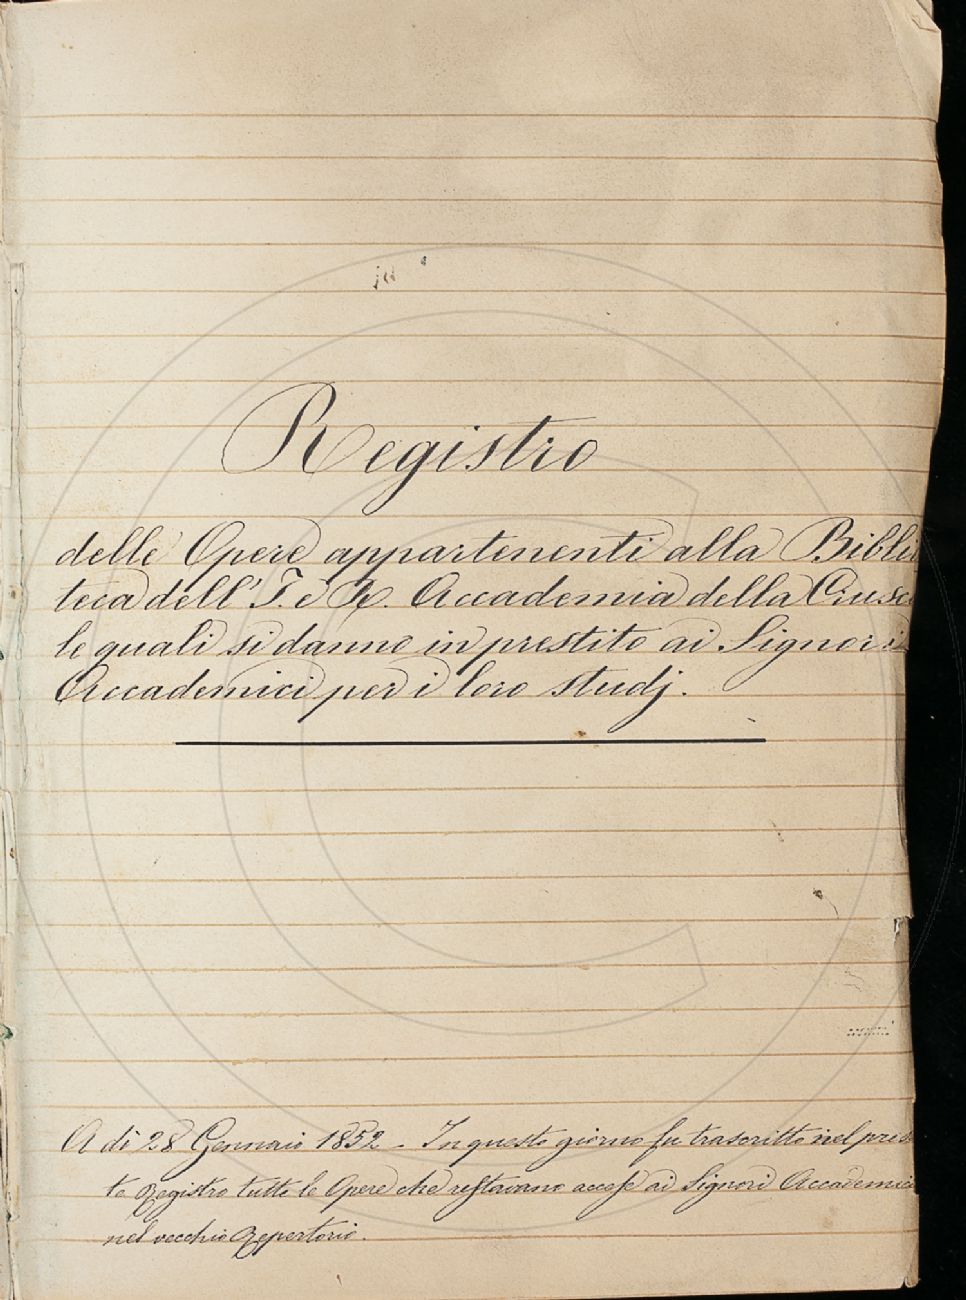 Registro
delle Opere appartenenti alla Biblio
teca dell' I. e R. Accademia della Crusca
le quali si danno in prestito ai Signori
Accademici per i loro studj.
A dì 28 Gennaio 1852 - In questo giorno fu trascritto nel presen
te Registro tutte le Opere che restavano accese ai Signori Accademici
nel vecchio Repertorio.